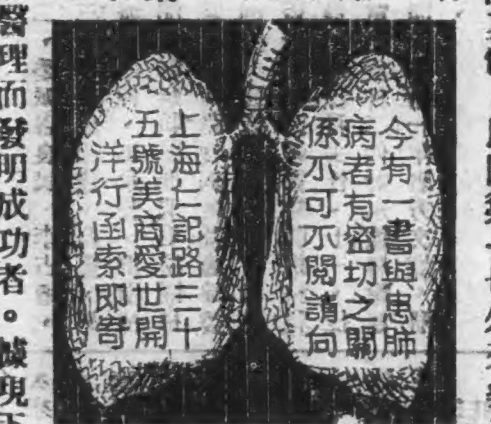 今有一書與患肺
病者有密切之關
係不可不閱請向
上海仁記路三十
五號美商愛世開
洋行函索即寄
醫理而發明成功者。據現